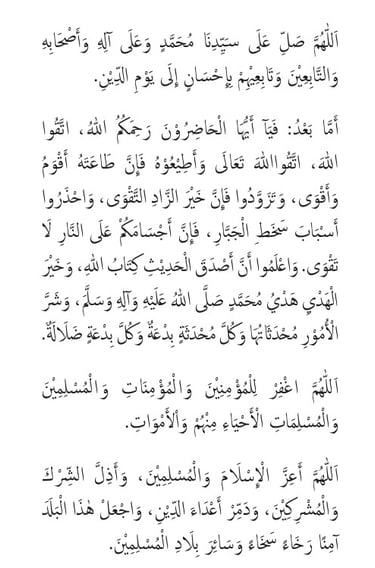 اَللّٰهُمَّ صَلِّ عَلَى سَيِّدِنَا مُحَمَّدٍ وَعَلَى آلِهِ وَأَصْحَابِهِ
وَالتَّابِعِيْنَ وَتَابِعِيْهِمْ بِإِحْسَانٍ إِلَى يَوْمِ الدِّيْنِ.
أَمَّا بَعْدُ: فَيَآ أَيُّهَا الْحَاضِرُوْنَ رَحِمَكُمُ اللهُ، اتَّقُوا
اللهَ، اتَّقُوااللهَ تَعَالَى وَأَطِيْعُوْهُ فَإِنَّ طَاعَتَهُ أَقْوَمُ
وَأَقْوَى، وَتَزَوَّدُوا فَإِنَّ خَيْرَ الزَّادِ التَّقْوَى، وَاحْذَرُوا
أَسْبَابَ سَخَطِ الْجَبَّارِ، فَإِنَّ أَجْسَامَكُمْ عَلَى النَّارِ لَا
تَقْوَى. وَاعْلَمُوا أَنَّ أَصْدَقَ الْحَدِيْثِ كِتَابُ اللهِ، وَخَيْرَ
الْهَدْيِ هَدْيُ مُحَمَّدٍ صَلَّى اللهُ عَلَيْهِ وَآلِهِ وَسَلَّمَ، وَشَرَّ
الْأُمُوْرِ مُحْدَثَاتُهَا وَكُلَّ مُحْدَثَةٍ بِدْعَةٌ وَكُلَّ بِدْعَةٍ ضَلَالَةٌ.
اَللّٰهُمَّ اغْفِرْ لِلْمُؤْمِنِيْنَ وَالْمُؤْمِنَاتِ وَالْمُسْلِمِيْنَ
وَالْمُسْلِمَاتِ الْأَحْيَاءِ مِنْهُمْ وَالْأَمْوَاتِ.
اَللّٰهُمَّ أَعِزَّ الْإِسْلَامَ وَالْمُسْلِمِيْنَ، وَأَذِلَّ الشِّرْكَ
وَالْمُشْرِكِيْنَ، وَدَمِّرْ أَعْدَاءَ الدِّيْنِ، وَاجْعَلْ هٰذَا الْبَلَدَ
آمِنًا رَخَاءً سَخَاءً وَسَائِرَ بِلَادِ الْمُسْلِمِيْنَ.